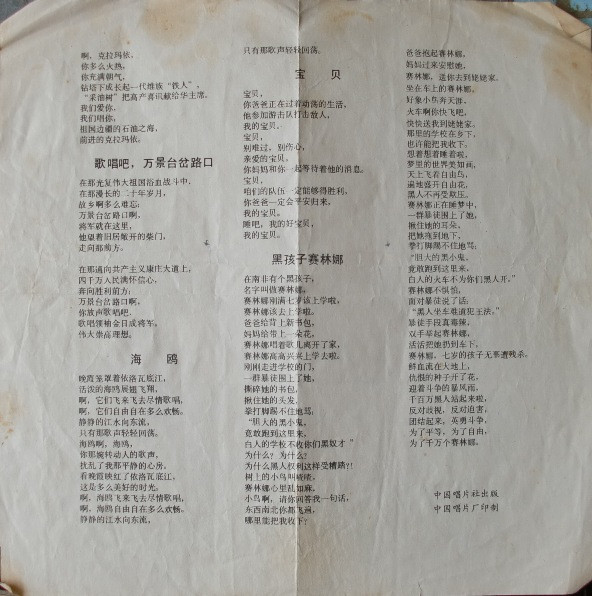 啊，克拉玛依，
你多么火热，
你充满朝气，
钻塔下成长起一代维族“铁人”，
“采油树”把高产喜讯献给华主席。
我们爱你，
我们唱你，
祖国边疆的石油之海，
前进的克拉玛依。
歌唱吧，万景台岔路口
在那光复伟大祖国浴血战斗中，
在那漫长的二十年岁月，
故乡啊多么难忘；
万景台岔路口啊，
将军就在这里，
他望着旧居敞开的柴门，
走向那前方。
在那通向共产主义康庄大道上，
四千万人民满怀信心，
奔向胜利前方；
万景台岔路口啊，
你放声歌唱吧，
歌唱领袖金日成将军，
伟大崇高理想。
海鸥
晚霞笼罩着依洛瓦底江，
活泼的海鸥展翅飞翔，
啊，它们飞来飞去尽情歌唱，
啊，它们自由自在多么欢畅。
静静的江水向东流，
只有那歌声轻轻回荡。
海鸥啊，海鸥，
你那婉转动人的歌声，
扰乱了我那平静的心房。
看晚霞映红了依洛瓦底江，
这是多么美好的时光。
啊，海鸥飞来飞去尽情歌唱，
啊，海鸥自由自在多么欢畅。
静静的江水向东流，
只有那歌声轻轻回荡。
宝贝
宝贝，
你爸爸正在过着动荡的生活，
他参加游击队打击敌人，
我的宝贝。
宝贝，
别难过，别伤心，
亲爱的宝贝，
你妈妈和你一起等待着他的消息。
宝贝，
咱们的队伍一定能够得胜利，
你爸爸一定会平安归来，
我的宝贝。
睡吧，我的好宝贝，
我的宝贝。
黑孩子赛林娜
在南非有个黑孩子，
名字叫做赛林娜，
赛林娜刚满七岁该上学啦，
赛林娜该去上学啦。
爸爸给背上新书包，
妈妈给带上一朵花，
赛林娜唱着歌儿离开了家，
赛林娜高高兴兴上学去啦。
刚刚走进学校的门，
一群暴徒围上了她，
撕碎她的书包，
揪住她的头发，
拳打脚踢不住地骂，
“胆大的黑小鬼，
竟敢跑到这里来，
白人的学校不收你们黑奴才”
为什么？为什么？
为什么黑人权利这样受糟踏？！
树上的小鸟叫喳喳，
赛林娜心里乱如麻，
小鸟啊，请你回答我一句话，
东西南北你都飞遍，
哪里能把我收下？
爸爸抱起赛林娜，
妈妈过来安慰她，
赛林娜，送你去到姥姥家。
坐在车上的赛林娜，
好象小鸟奔天涯，
火车啊你快飞吧，
快快送我到姥姥家。
那里的学校在乡下，
也许能把我收下。
想着想着睡着啦，
梦里的世界美如画，
天上飞着自由鸟，
遍地盛开自由花，
黑人不再受欺压。
赛林娜正在睡梦中，
一群暴徒围上了她，
揪住她的耳朵，
把她拖到地下，
拳打脚踢不住地骂：
“胆大的黑小鬼，
竟敢跑到这里来，
白人的火车不为你们黑人开。”
赛林娜不惧怕，
面对暴徒说了话：
“黑人坐车难道犯王法。”
暴徒手段真毒辣，
双手举起赛林娜，
活活把她扔到车下，
赛林娜，七岁的孩子无辜遭残杀，
鲜血流在大地上，
仇恨的种子开了花，
迎着斗争的暴风雨，
千百万黑人站起来啦，
反对歧视，反对迫害，
团结起来，英勇斗争，
为了平等，为了自由，
为了千万个赛林娜。
中国唱片社出版
中国唱片厂印制